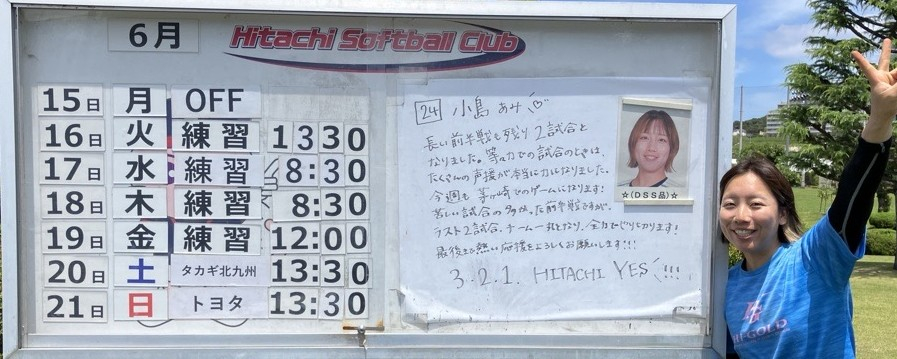 6月
Hitachi Softball Club
15日 月 OFF
16日 火 練習 13:30
17日 水 練習 8:30
18日 木 練習 8:30
19日 金 練習 12:00
20日 土 タカギ北九州 13:30
21日 日 トヨタ 13:30
24 小島 あみ♡
長い前半戦も残り2試合と
なりました。等々力での試合のときは、
たくさんの声援が本当に力になりました。
今週も等々力でのゲームになります!
苦しい試合の多かった前半戦ですが、
ラスト2試合、チーム一丸となり、全力で
最後まで熱い応援をよろしくお願いします!!!
3.2.1. HITACHI YES!!!
☆(DSS品)☆
HI-GOLD